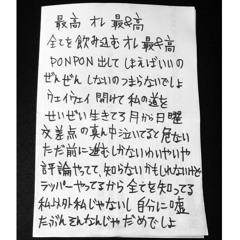 最高 オレ 最&高
全てを飲み込む オレ 最&高
PONPON 出して しまえばいいの
ぜんぜん しないの つまらないでしょ
ウェイウェイ 開けて 私の道を
せいぜい生きて3月か日曜
交差点の真ん中泣いてると危ない
ただ前に進むしかないわいやいや
評論やってて、知らないかもしれないけど
ラッパーやってるから全てを知ってる
私以外私じゃないし 自分に嘘
たぶんそんなんじゃだめでしょ